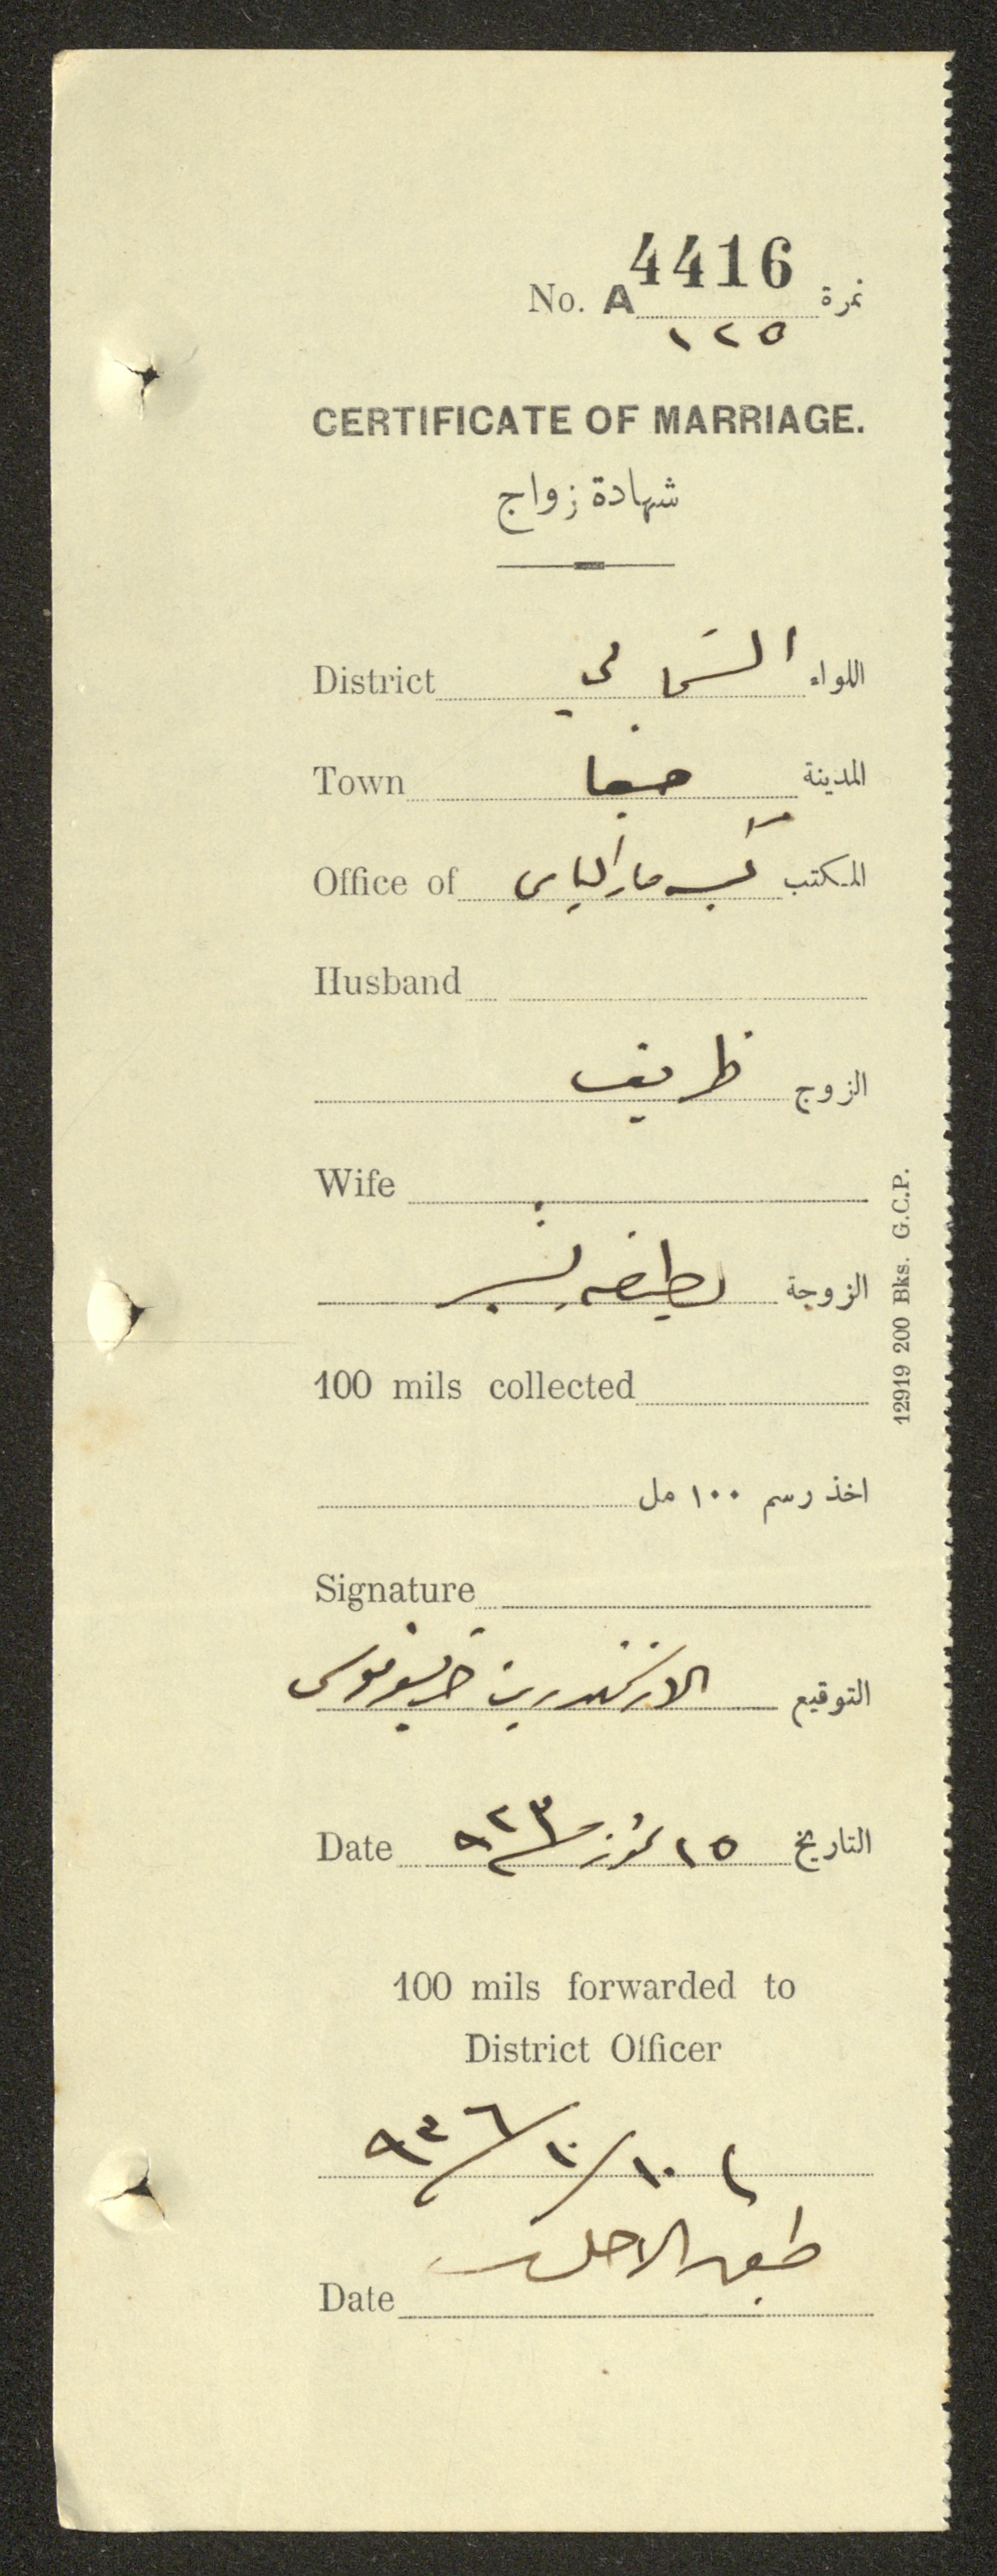 4416
No. A نمرة
١٢٥
CERTIFICATE OF MARRIAGE.
شهادة زواج
District الشمالي اللواء
Town حيفا المدينة
Office of مار الياس المكتب
Husband
ظريف الزوج
Wife
لطيفه الزوجة
100 mils collected
اخذ رسم ١٠٠ مل
Signature
التوقيع
Date ١٥ تموز ٩٢٣ التاريخ
100 mils forwarded to
District Officer
١٠/١٠/٩٣٦
طبق الاصل
Date
12919 200 Bks. G.C.P.